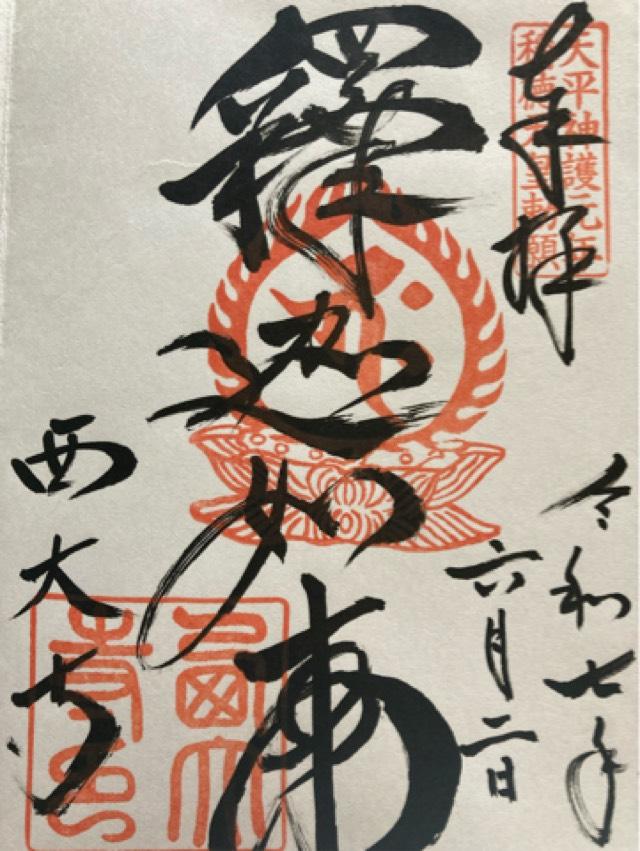 奉拝
天平神護元年
称徳天皇勅願
令和七年
六月二日
釋迦如来
西大寺
西大
寺印